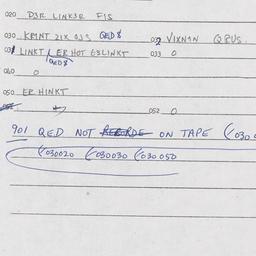 020 D3R LINK3R FIS
030 KRMNT 21X QJS QED8 032 VIXN1N QRUS.
031 LINKT/ER HOT E3LINKT 033 0
QED8
040 0
050 ER HINKT
052 0
901 QED NOT ON TAPE (030
(030020 (030030 (030050